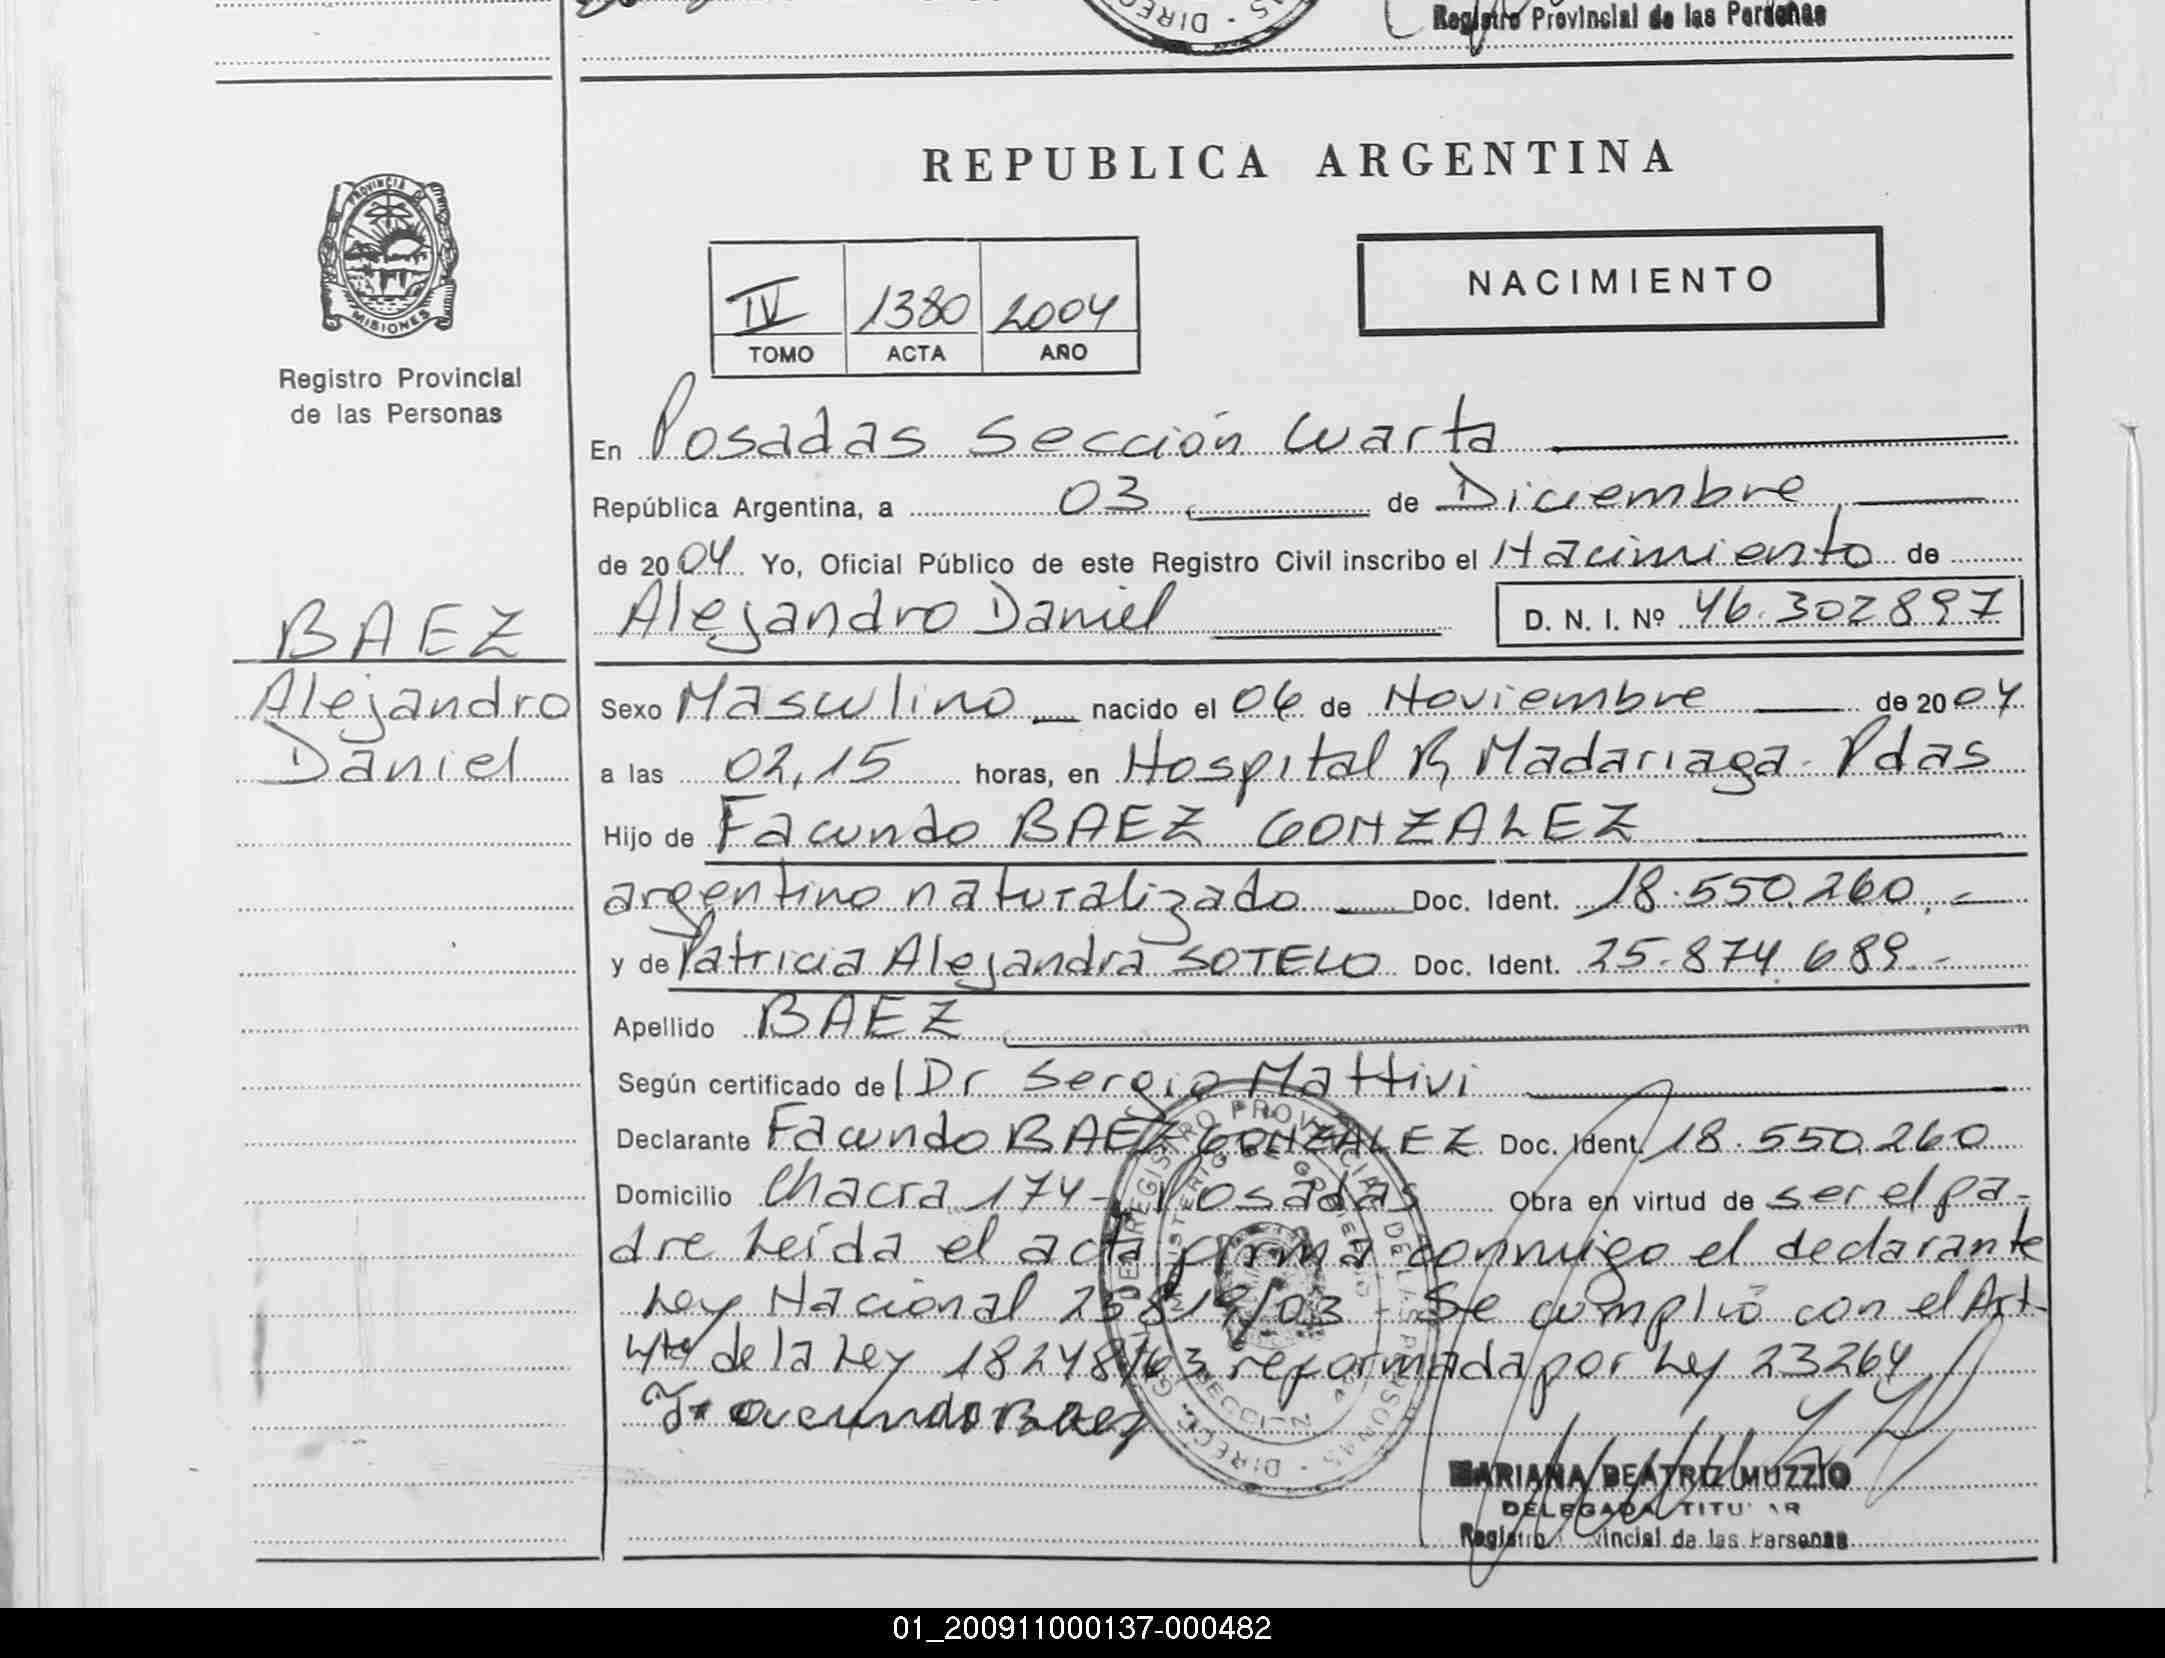 Registro Provincial de las Personas
REPUBLICA ARGENTINA
NACIMIENTO
IV 1380 2004
TOMO ACTA AÑO
PROVINCIA DE MISIONES
Registro Provincial
de las Personas
En Posadas Sección Cuarta
República Argentina, a 03 de Diciembre
de 2004 Yo, Oficial Público de este Registro Civil inscribo el Nacimiento de
Alejandro Daniel D. N. I. Nº 46.302897
BAEZ
Alejandro
Daniel
Sexo Masculino nacido el 06 de Noviembre de 2004
a las 02,15 horas, en Hospital R, Madariaga - Pdas
Hijo de Facundo BAEZ GONZALEZ
argentino naturalizado Doc. Ident. 18.550.260.-
y de Patricia Alejandra SOTELO Doc. Ident. 25.874.689.-
Apellido BAEZ
Según certificado del Dr Sergio Mattivi
Declarante Facundo BAEZ GONZALEZ Doc. Ident. 18.550.260
Domicilio Chacra 174 - Posadas Obra en virtud de ser el pa-
dre Leída el acta firma conmigo el declarante
Ley Nacional 25819/03 Se cumplió con el Art-
4to de la Ley 18248/63 reformada por Ley 23264
Facundo Baez
MARIANA BEATRIZ MUZZIO
DELEGADA TITULAR
Registro Provincial de las Personas
01_200911000137-000482